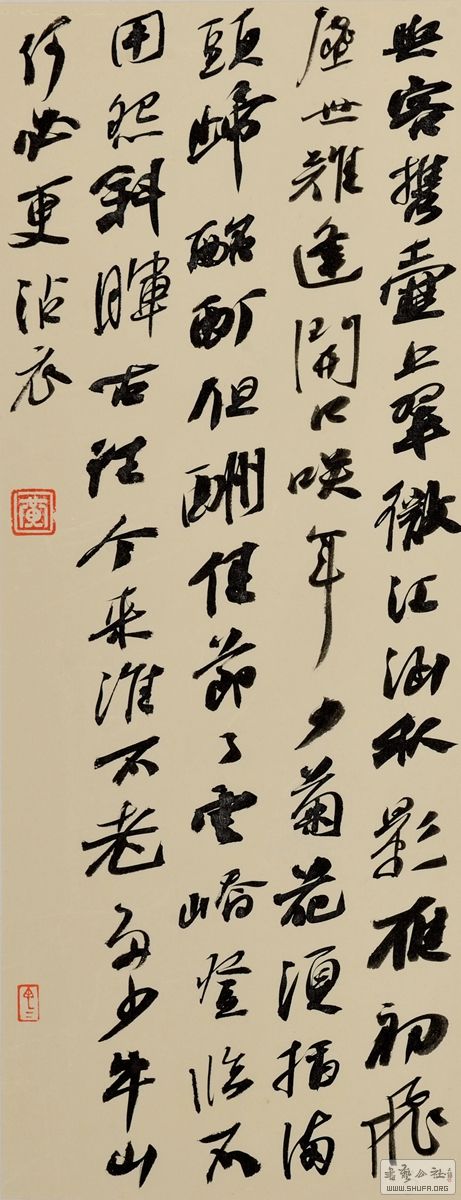 與客攜壺上翠微江涵秋影雁初飛
塵世難逢開口咲年少菊花須插滿
頭歸酩酊但酬佳節了雲嶠登臨不
用怨斜暉古往今來誰不老多少牛山
何必更沾衣
黄
書藝公社
WWW.SHUFA.ORG